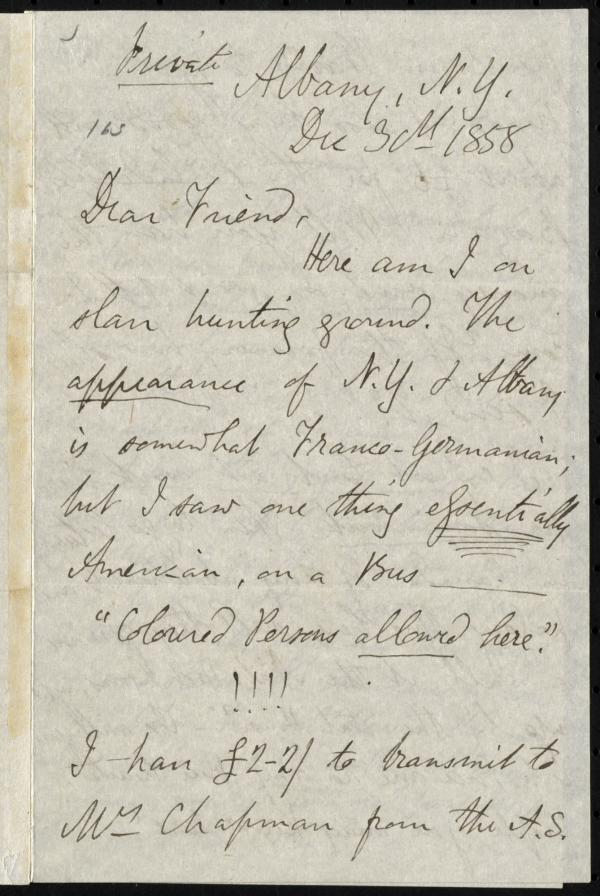 Private
Albany, N.Y.
Dec 30th 1858
Dear Friend,
Here am I on
slave hunting ground. The
appearance of N.Y. & Albany
is somewhat Franco-Germanian;
but I saw one thing essentially
American, on a Bus
"Coloured Persons allowed here".
!!!!
I have £2-2/ to transmit to
Mrs Chapman from the A.S.